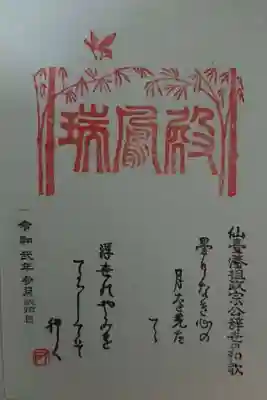 瑞鳳殿
仙臺藩祖政宗公辞世の和歌
曇りなき心の
月を先た
てゝ
浮世のやみを
てらしてそ
行く
令和弐年参月